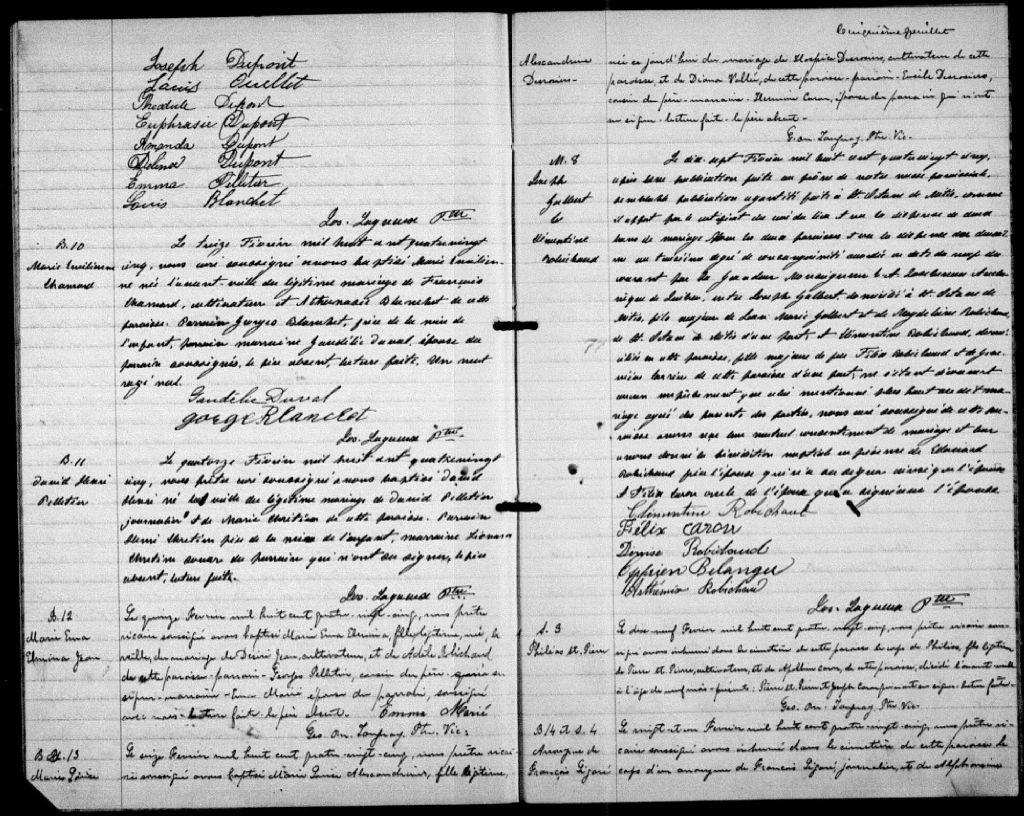 Joseph Dupont
Louis Ouellet
Théodule Dupont
Euphrasie Dupont
Amanda Dupont
Dolina Dupont
Emma Pelletier
Louis Blanchet
Jos. Lagueux Ptre
B. 10
Marie Emilienne
Chamard
Le seize Février mil huit cent quatrevingt
cinq, nous curé soussigné avons baptisé Marie Emilien-
ne née l'avant veille du légitime mariage de François
Chamard, cultivateur et Athenaïse Blanchet de cette
paroisse. Parrain Georges Blanchet, frère de la mère de
l'enfant, marraine Gaudélie Duval, épouse du
parrain soussignés, le père absent, lecture faite. Un mot
rayé nul.
Gaudélie Duval
gorge Blanchet
Jos. Lagueux Ptre
B. 11
David Henri
Pelletier
Le quatorze Février mil huit cent quatrevingt
cinq, nous prêtre curé soussigné avons baptisé David
Henri né la veille du légitime mariage de David Pelletier
journalier et de Marie Chrétien de cette paroisse. Parrain
Henri Chrétien père de la mère de l'enfant, marraine
Chrétien soeur du parrain qui n'ont su signer, le père
absent, lecture faite.
Jos. Lagueux Ptre
B. 12
Marie Ema
Elmina Jean
Le quinze Fevrier mil huit cent quatre-vingt-cinq, nous prêtre
vicaire soussigné avons baptisé Marie Ema Elmina, fille légitime, née, la
veille, du mariage de Désiré Jean, cultivateur, et de Adèle Robichaud
de cette paroisse - parrain - Georges Pelletier, cousin du père - qui n'a su
signer - marraine - Ema Marié épouse du parrain, soussignée
avec nous - lecture faite - le père absent. Emma Marié
Geo. On. Ptre. Vic.
B. 13
Marie Louise
Le seize Fevrier mil huit cent quatre-vingt-cinq, nous prêtre vicai-
re soussigné avons baptisé Marie Louise Alexandrine, fille légitime,
Cinquième feuillet
Alexandrine
Desrosiers
née ce jour d'hui du mariage de Hospice Desrosiers, cultivateur de cette
paroisse, et de Diana Vallée, de cette paroisse - parrain - Emile Desrosiers,
cousin du père - marraine - Hermine Caron, épouse du parrain qui n'ont
su signer - lecture faite - le père absent -
Geo. On. Ptre. Vic.
M. 8
Joseph
Galbert
&
Clémentine
Robichaud
Le dix-sept Février mil huit cent quatrevingt cinq,
après une publication faite au prône de notre messe paroissiale,
semblable publication ayant été faite à St. Octave de Métis, comme
il appert par le certificat du curé du lieu et vu la dispense de deux
bans de mariage pour les deux paroisses et vu la dispense
au troisième degré de consanguinité accordée en date du neuf du
courant par Sa Grandeur Monseigneur
de Québec, entre Joseph Galbert, domicilié à St. Octave de
Métis, fils majeur de Jean Marie Galbert et de Magdeleine Robichaud,
de St. Octave de Métis d'une part, et Clémentine Robichaud, domi-
ciliée en cette paroisse, fille majeure de feu Félix Robichaud et de
Caron de cette paroisse d'autre part, ne s'étant découvert
aucun empêchement que celui mentionné plus haut au dit ma-
riage agréé des parents des parties, nous curé soussigné de cette pa-
roisse avons reçu leur mutuel consentement de mariage et leur
avons donné la bénédiction nuptiale en présence de Edouard
Robichaud frère l'épouse qui n'a su signer
& Félix Caron oncle de l'épouse qui a signé avec l'épouse
Clémentine Robichaud
Félix Caron
Denise Robichaud
Cyprien Belanger
Robichaud
Jos. Lagueux Ptre
S. 3
Philias St. Pierre
Le dix neuf Fevrier mil huit cent quatre-vingt-cinq, nous prêtre vicaire sous-
signé avons inhumé dans le cimetière de cette paroisse le corps de Philias, fils légitime
de Pierre St. Pierre, cultivateur, et de Caron, de cette paroisse, décédé l'avant veille
à l'âge de neuf mois - présents : Pierre St. Pierre et Joseph Caron - lecture faite -
Geo. On. Ptre. Vic.
B 14 & S. 4
Anonyme de
François Ligaré
Le vingt et un Fevrier mil huit cent quatre-vingt-cinq, nous prêtre vi-
caire soussigné avons inhumé dans le cimetière de cette paroisse le
corps d'un anonyme de François Ligaré, journalier, et de Alphonsine